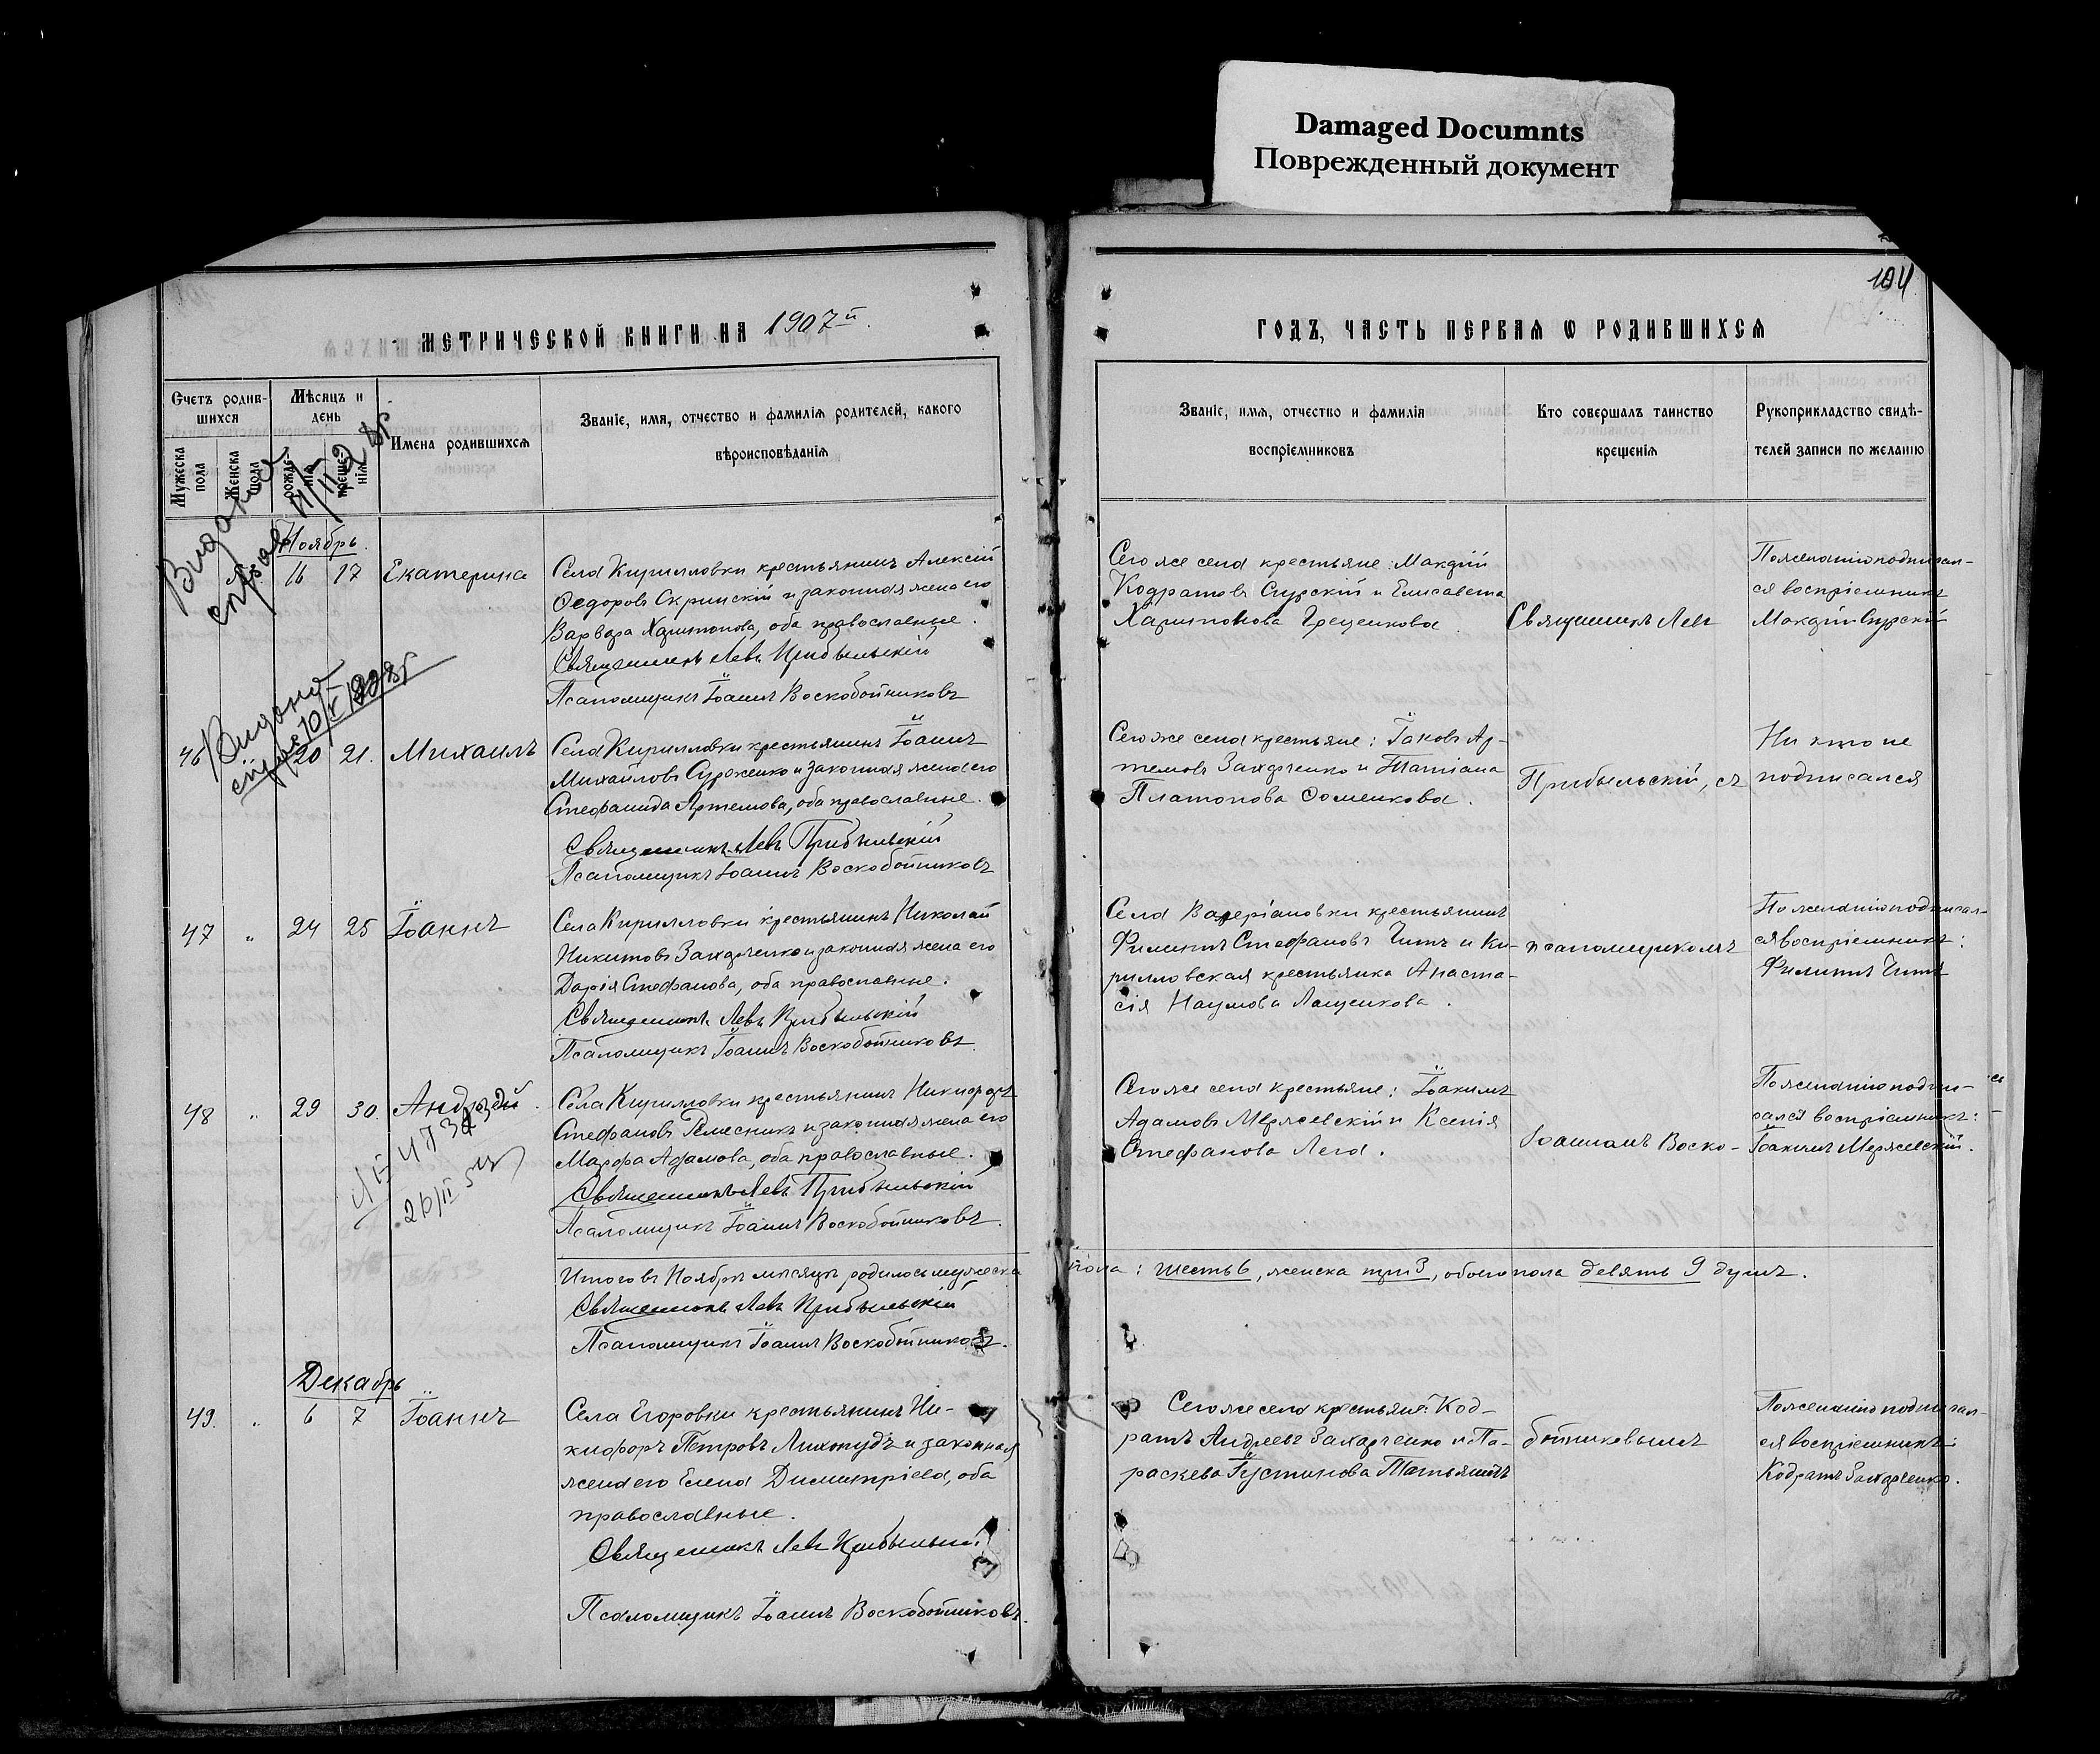 Damaged Documnts
Поврежденный документ
194
МЕТРИЧЕСКОЙ КНИГИ НА 1907й.
ГОДЪ, ЧАСТЬ ПЕРВАЯ Ѡ РОДИВШИХСЯ
Счетъ родив-
шихся
Мужеска
пола
Женска
пола
Мѣсяцъ и
день
рожде-
нія
креще-
нія
Имена родившихся
Званіе, имя, отчество и фамилія родителей, какого
вѣроисповѣданія
Званіе, имя, отчество и фамилія
воспріемниковъ
Кто совершалъ таинство
крещенія
Рукоприкладство свидѣ-
телей записи по желанію
Видана
справ
Ноябрь.
16 17 Екатерина
Села Кирилловки крестьянинъ Алексій
Ѳедоровъ Скринскій и законная жена его
Варвара Харитонова, оба православные.
Священникъ Левъ Прибыльскій
Псаломщикъ Іоаннъ Воскобойниковъ
Сего же села крестьяне: Макарій
Кодратовъ Сурскій и Елисавета
Харитонова Грещенкова.
Священникъ Левъ
По желанію подписал-
ся воспріемникъ
Макарій Сурскій
Видана
справ 10/X 1928г
46 20 21. Михаилъ
Села Кирилловки крестьянинъ Іоаннъ
Михайловъ Суржженко и законная жена его
Стефанида Артемова, оба православные.
Священникъ Левъ Прибыльскій
Псаломщикъ Іоаннъ Воскобойниковъ
Сего же села крестьяне: Іаковъ Ар-
темовъ Захарченко и Татіана
Платонова Ѳоменкова.
Прибыльскій, съ
Ни кто не
подписался
47 " 24 25 Іоаннъ
Села Кирилловки крестьянинъ Николай
Никитовъ Захарченко и законная жена его
Дарія Стефанова, оба православные.
Священникъ Левъ Прибыльскій
Псаломщикъ Іоаннъ Воскобойниковъ.
Села Валеріановки крестьянинъ
Филиппъ Стефановъ Читъ и Ки-
рилловская крестьянка Анаста-
сія Наумова Лащенкова.
псаломщикомъ
По желанію подписал-
ся воспріемникъ:
Филиппъ Читъ
48 " 29 30. Андрей.
26/II 54
Села Кирилловки крестьянинъ Никифоръ
Стефановъ Ремесникъ и законная жена его
Марфа Адамова, оба православные.
Священникъ Левъ Прибыльскій
Псаломщикъ Іоаннъ Воскобойниковъ.
Сего же села крестьяне: Іоакимъ
Адамовъ Мержсевскій и Ксенія
Стефанова Лега.
Іоанномъ Воско-
По желанію подпи-
сался воспріемникъ:
Іоакимъ Мержсевскій.
Итого въ Ноябрѣ мѣсяцѣ родилось мужеска пола: шесть 6, женска три 3, обоего пола девять 9 душъ.
Священникъ Левъ Прибыльскій
Псаломщикъ Іоаннъ Воскобойниковъ.
Декабрь
49. " 6 7 Іоаннъ
Села Егоровки крестьянинъ Ни-
кифоръ Петровъ Лихопудъ и законная
жена его Елена Димитріева, оба
православные.
Священникъ Левъ Прибыльскій
Псаломщикъ Іоаннъ Воскобойниковъ.
Сего же села крестьяне: Код-
ратъ Андреевъ Захарченко и Па-
раскева Іустинова Татьянинъ
бойниковымъ
По желанію подписал-
ся воспріемникъ:
Кодратъ Захарченко.